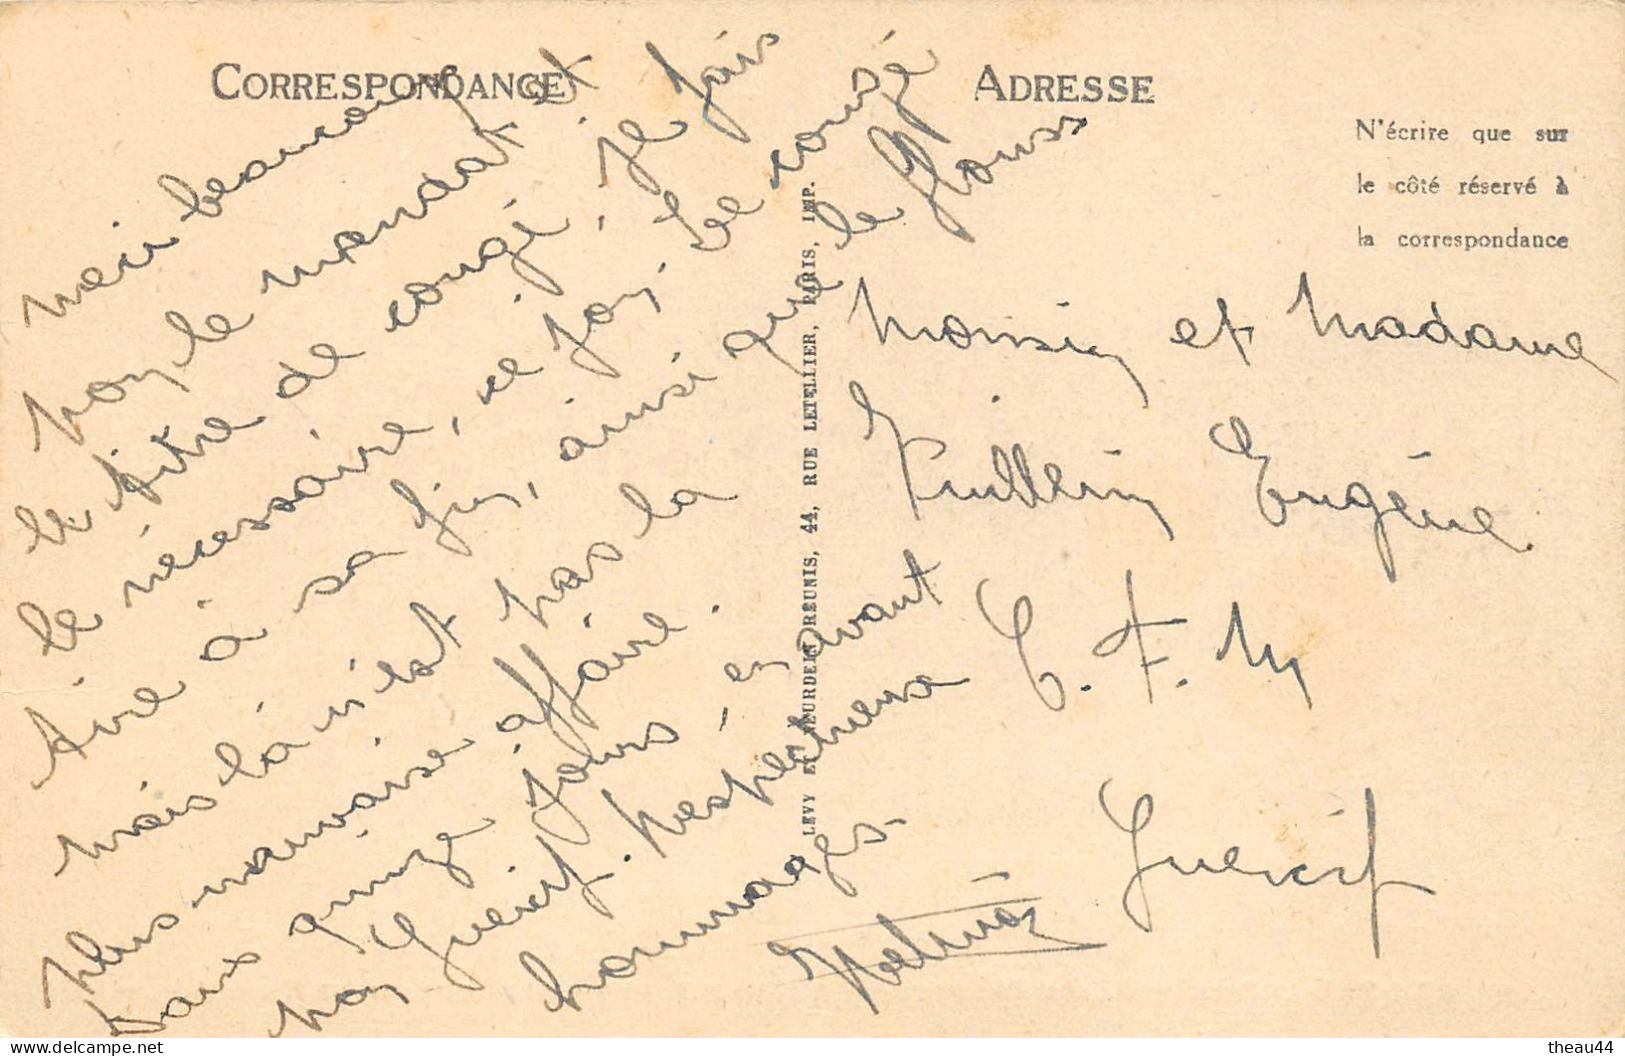 CORRESPONDANCE
merci beaucoup
pour le mandat et
le titre de congé. Je fais
le nécessaire, ce jour. Le congé
tire à sa fin, ainsi que le flouss
mais là n'est pas la
plus mauvaise affaire.
Dans quinze jours, en avant
pour Guercif. Respectueux
hommages.
ADRESSE
N'écrire que sur
le côté réservé à
la correspondance
Monsieur et Madame
Eugène
C. F. M
Guercif
LEVY ET NEURDEIN RÉUNIS, 44, RUE LETELLIER, PARIS, IMP.
delcampe.net
theau44